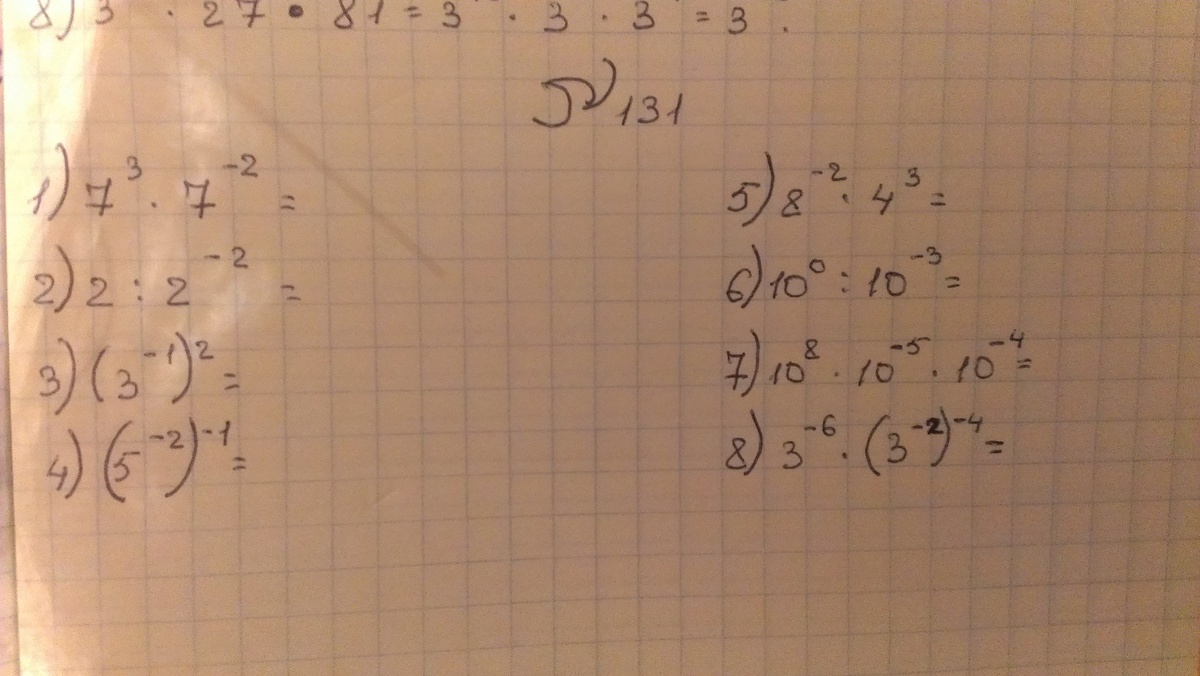 8) 3 · 27 · 81 = 3 · 3 · 3 = 3
131
1) 7³ · 7⁻² =
2) 2 : 2⁻² =
3) (3⁻¹)² =
4) (5⁻²)⁻¹ =
5) 8⁻² · 4³ =
6) 10⁰ : 10⁻³ =
7) 10⁸ · 10⁻⁵ · 10⁻⁴ =
8) 3⁻⁶ · (3⁻²)⁻⁴ =